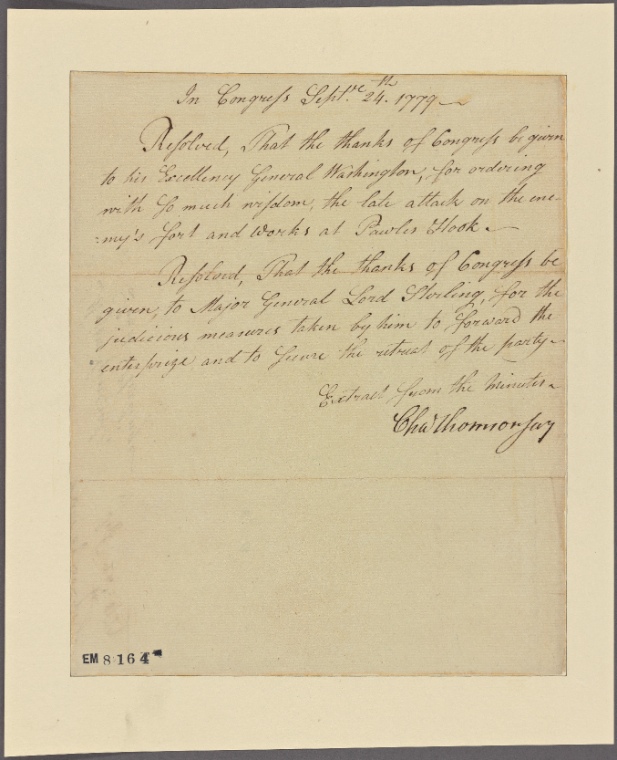 In Congress Septre 24th. 1779
Resolved, That the thanks of Congress be given
to his Excellency General Washington, for ordering
with so much wisdom, the late attack on the ene-
-my's fort and works at Pawles Hook
Resolved, That the thanks of Congress be
given, to Major General Lord Sterling, for the
judicious measures taken by him to forward the
enterprize and to secure the retreat of the party
Extract from the minutes
Cha Thomson secy
EM 8164